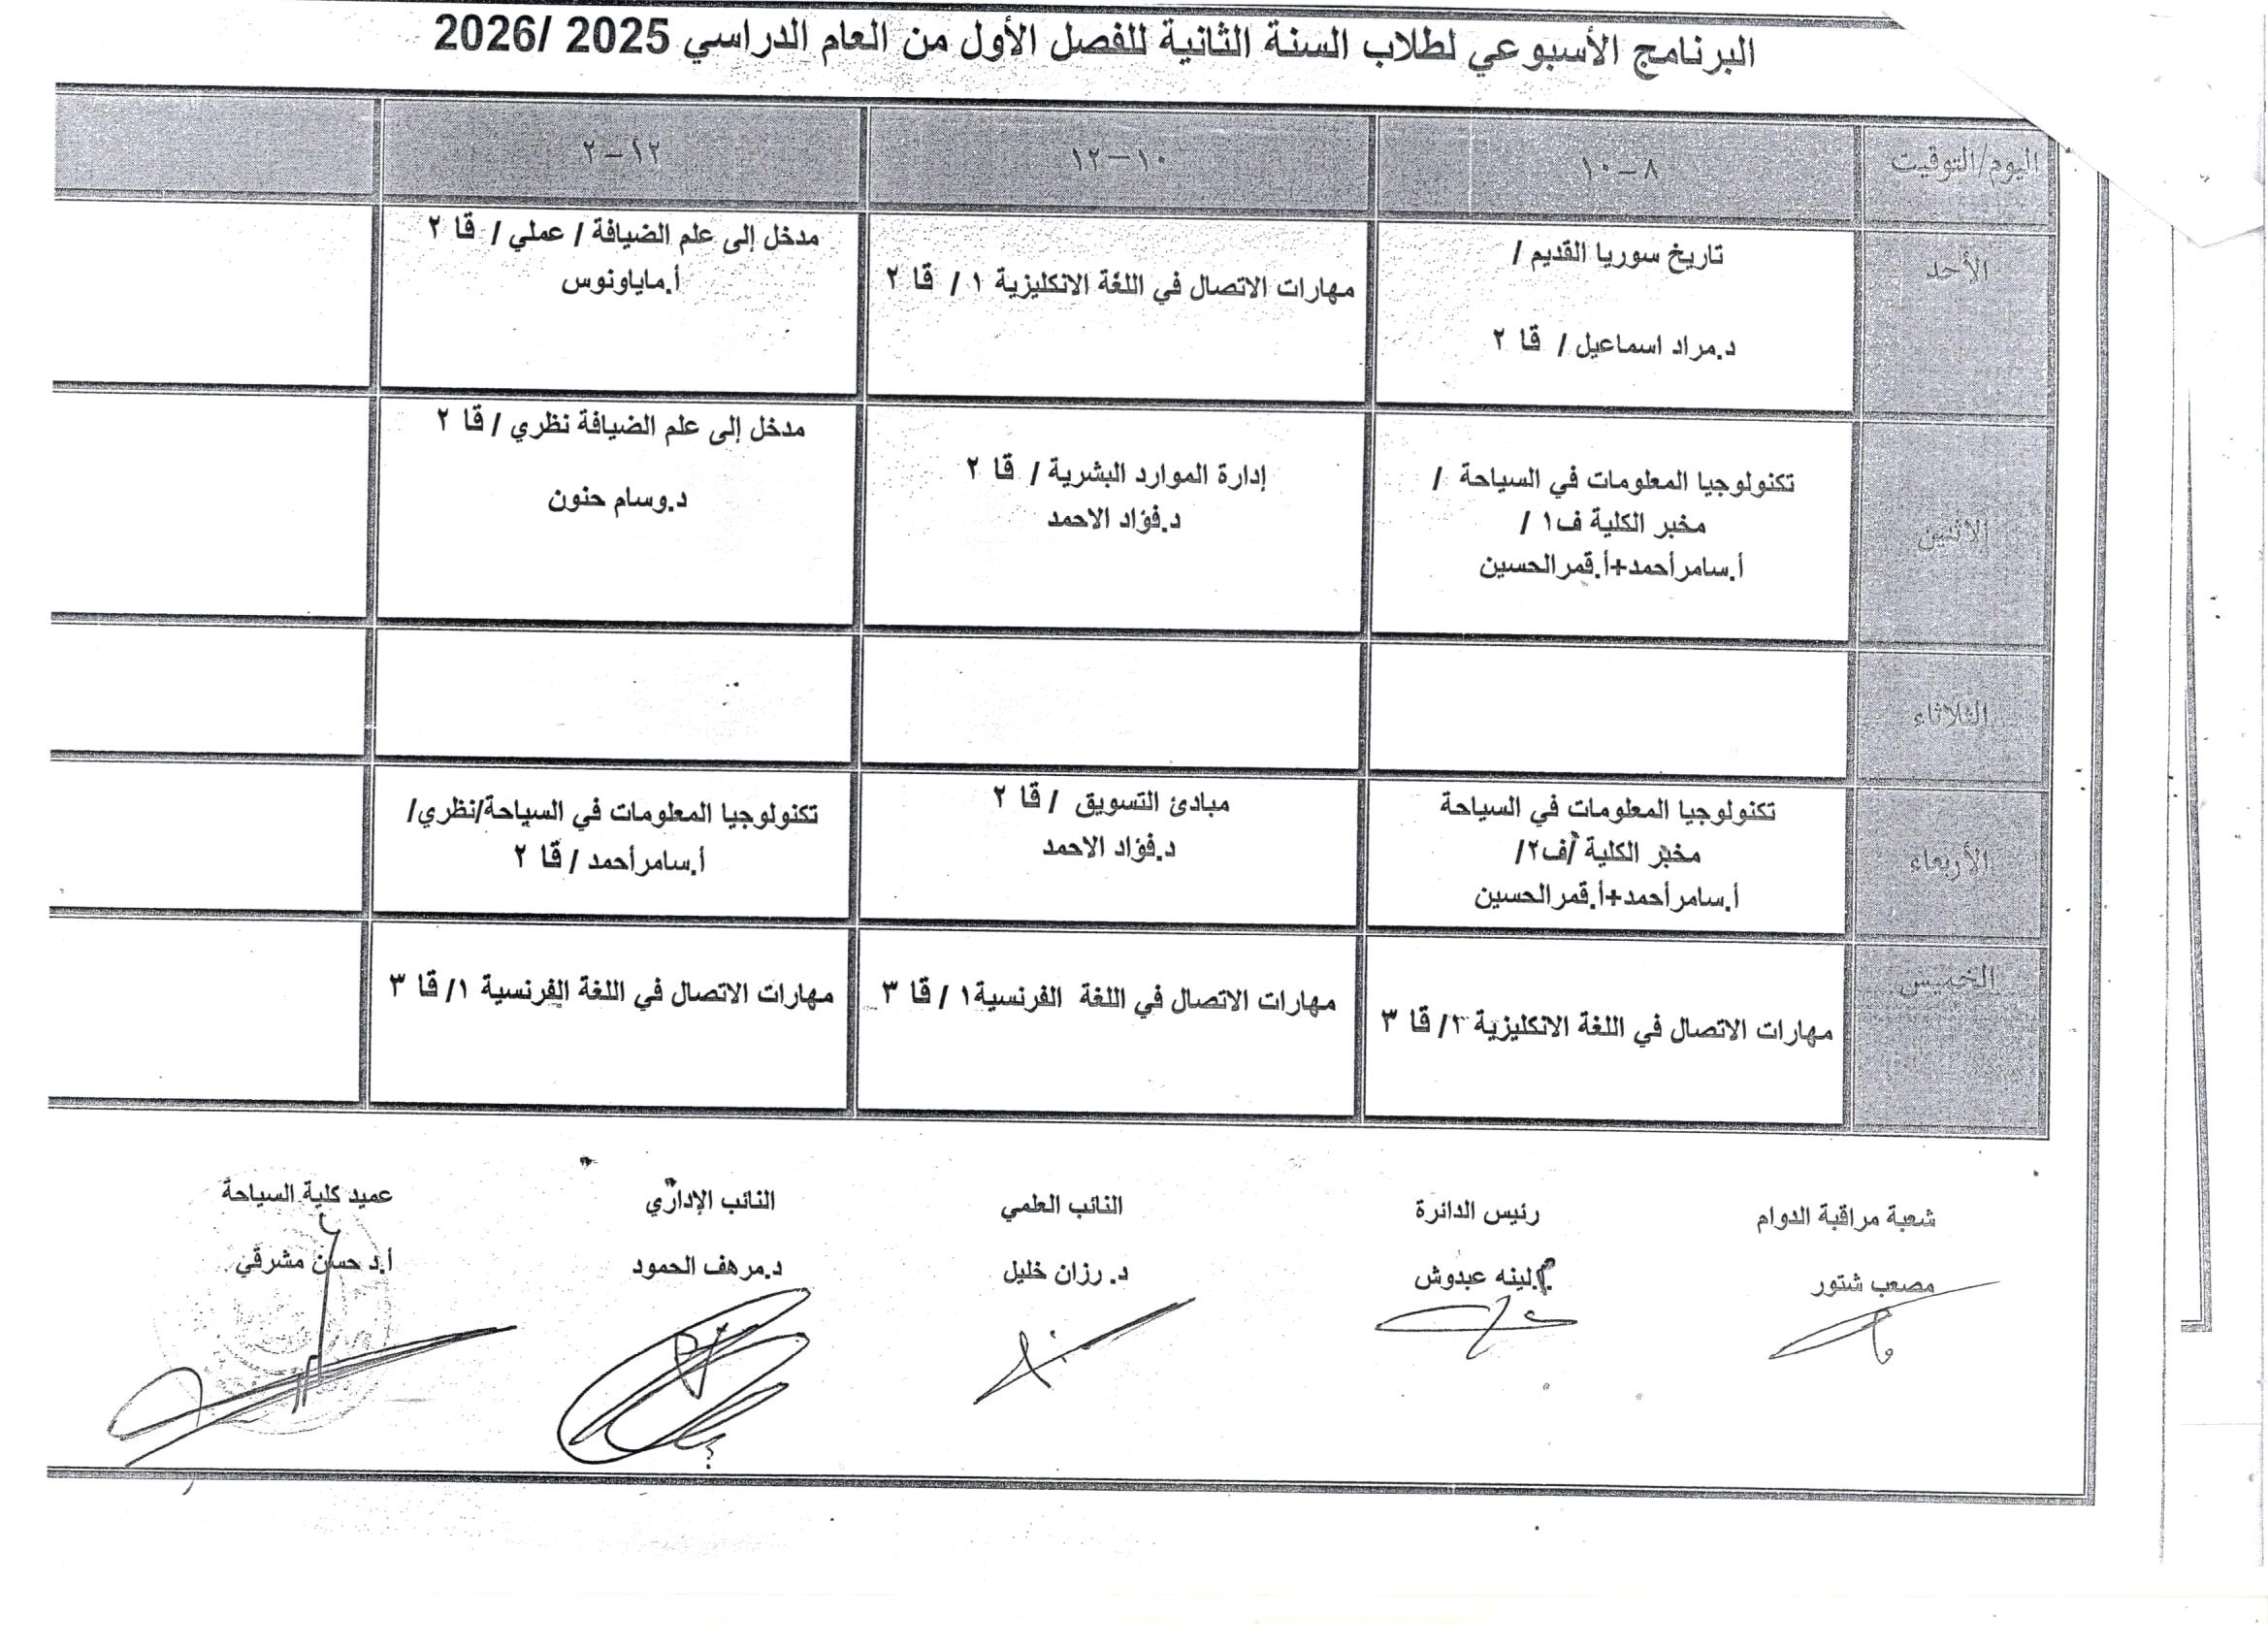 البرنامج الأسبوعي لطلاب السنة الثانية للفصل الأول من العام الدراسي 2025 /2026
اليوم/التوقيت
٨-١٠
١٠-١٢
١٢-٢
الأحد
تاريخ سوريا القديم /
د.مراد اسماعيل / قا ٢
مهارات الاتصال في اللغة الانكليزية ١ / قا ٢
مدخل إلى علم الضيافة / عملي / قا ٢
أ.ماياونوس
الاثنين
تكنولوجيا المعلومات في السياحة /
مخبر الكلية ف١ /
أ.سامرأحمد+أ.قمرالحسين
إدارة الموارد البشرية / قا ٢
د.فؤاد الاحمد
مدخل إلى علم الضيافة نظري / قا ٢
د.وسام حنون
الثلاثاء
الأربعاء
تكنولوجيا المعلومات في السياحة
مخبر الكلية /ف٢/
أ.سامرأحمد+أ.قمرالحسين
مبادئ التسويق / قا ٢
د.فؤاد الاحمد
تكنولوجيا المعلومات في السياحة/نظري/
أ.سامرأحمد / قا ٢
الخميس
مهارات الاتصال في اللغة الانكليزية / قا ٣
مهارات الاتصال في اللغة الفرنسية١ / قا ٣
مهارات الاتصال في اللغة الفرنسية ١/ قا ٣
شعبة مراقبة الدوام
رئيس الدائرة
النائب العلمي
النائب الإداري
عميد كلية السياحة
مصعب شتور
لينه عبدوش
د. رزان خليل
د.مرهف الحمود
أ.د حسن مشرقي